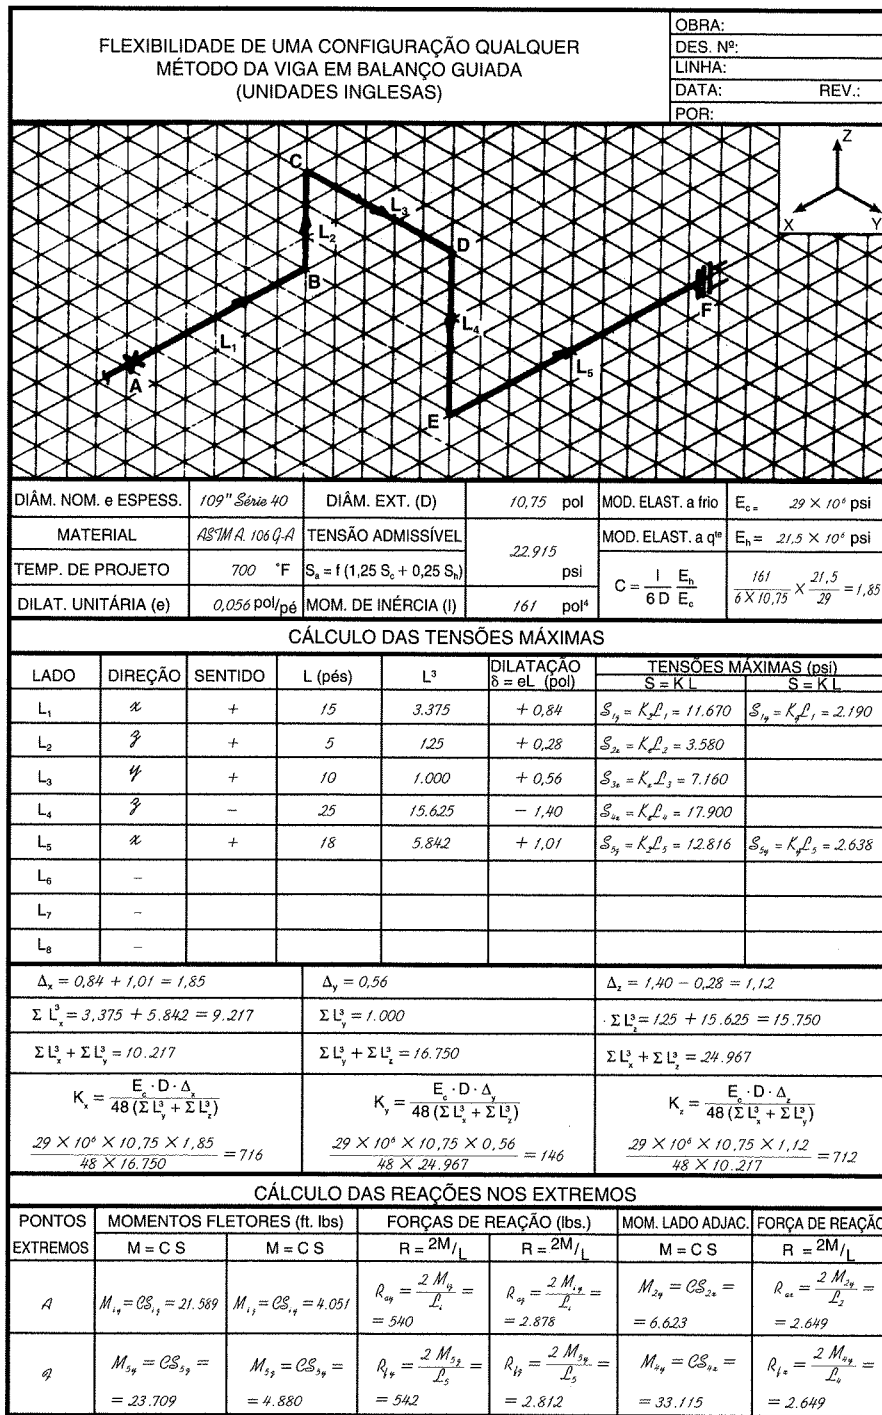 FLEXIBILIDADE DE UMA CONFIGURAÇÃO QUALQUER
MÉTODO DA VIGA EM BALANÇO GUIADA
(UNIDADES INGLESAS)
OBRA:
DES. Nº:
LINHA:
DATA: REV.:
POR:
Z
X
Y
C
L₃
L₂
D
B
L₁
A
L₄
F
L₅
E
DIÂM. NOM. e ESPESS. 109" Série 40 DIÂM. EXT. (D) 10,75 pol MOD. ELAST. a frio E꜀ = 29 × 10⁶ psi
MATERIAL ASTM A. 106 G-A TENSÃO ADMISSÍVEL 22.915 psi MOD. ELAST. a qᵗᵉ Eₕ = 21,5 × 10⁶ psi
TEMP. DE PROJETO 700 °F Sₐ = f (1,25 S꜀ + 0,25 Sₕ) C = I/6 D Eₕ/E꜀ 161/6 × 10,75 × 21,5/29 = 1,85
DILAT. UNITÁRIA (e) 0,056 pol/pé MOM. DE INÉRCIA (I) 161 pol⁴
CÁLCULO DAS TENSÕES MÁXIMAS
LADO DIREÇÃO SENTIDO L (pés) L³ DILATAÇÃO δ = eL (pol) TENSÕES MÁXIMAS (psi)
S = K L S = K L
L₁ x + 15 3.375 + 0,84 S₁z = KzL₁ = 11.670 S₁y = KyL₁ = 2.190
L₂ z + 5 125 + 0,28 S₂x = KxL₂ = 3.580
L₃ y + 10 1.000 + 0,56 S₃x = KxL₃ = 7.160
L₄ z − 25 15.625 − 1,40 S₄x = KxL₄ = 17.900
L₅ x + 18 5.842 + 1,01 S₅z = KzL₅ = 12.816 S₅y = KyL₅ = 2.638
L₆ –
L₇ –
L₈ –
Δx = 0,84 + 1,01 = 1,85 Δy = 0,56 Δz = 1,40 − 0,28 = 1,12
Σ L³x = 3,375 + 5.842 = 9.217 Σ L³y = 1.000 Σ L³z = 125 + 15.625 = 15.750
Σ L³x + Σ L³y = 10.217 Σ L³y + Σ L³z = 16.750 Σ L³x + Σ L³z = 24.967
Kx = E꜀ · D · Δx / 48 (Σ L³y + Σ L³z) Ky = E꜀ · D · Δy / 48 (Σ L³x + Σ L³z) Kz = E꜀ · D · Δz / 48 (Σ L³x + Σ L³y)
29 × 10⁶ × 10,75 × 1,85 / 48 × 16.750 = 716 29 × 10⁶ × 10,75 × 0,56 / 48 × 24.967 = 146 29 × 10⁶ × 10,75 × 1,12 / 48 × 10.217 = 712
CÁLCULO DAS REAÇÕES NOS EXTREMOS
PONTOS EXTREMOS MOMENTOS FLETORES (ft. lbs) FORÇAS DE REAÇÃO (lbs.) MOM. LADO ADJAC. FORÇA DE REAÇÃO
M = C S M = C S R = 2M/L R = 2M/L M = C S R = 2M/L
A M₁y = CS₁z = 21.589 M₁z = CS₁y = 4.051 Ray = 2 M₁z/L₁ = 540 Raz = 2 M₁y/L₁ = 2.878 M₂y = CS₂x = 6.623 Rax = 2 M₂y/L₂ = 2.649
M₅y = CS₅z = 23.709 M₅z = CS₅y = 4.880 Rfy = 2 M₅z/L₅ = 542 Rfz = 2 M₅y/L₅ = 2.812 M₄y = CS₄x = 33.115 Rfx = 2 M₄y/L₄ = 2.649